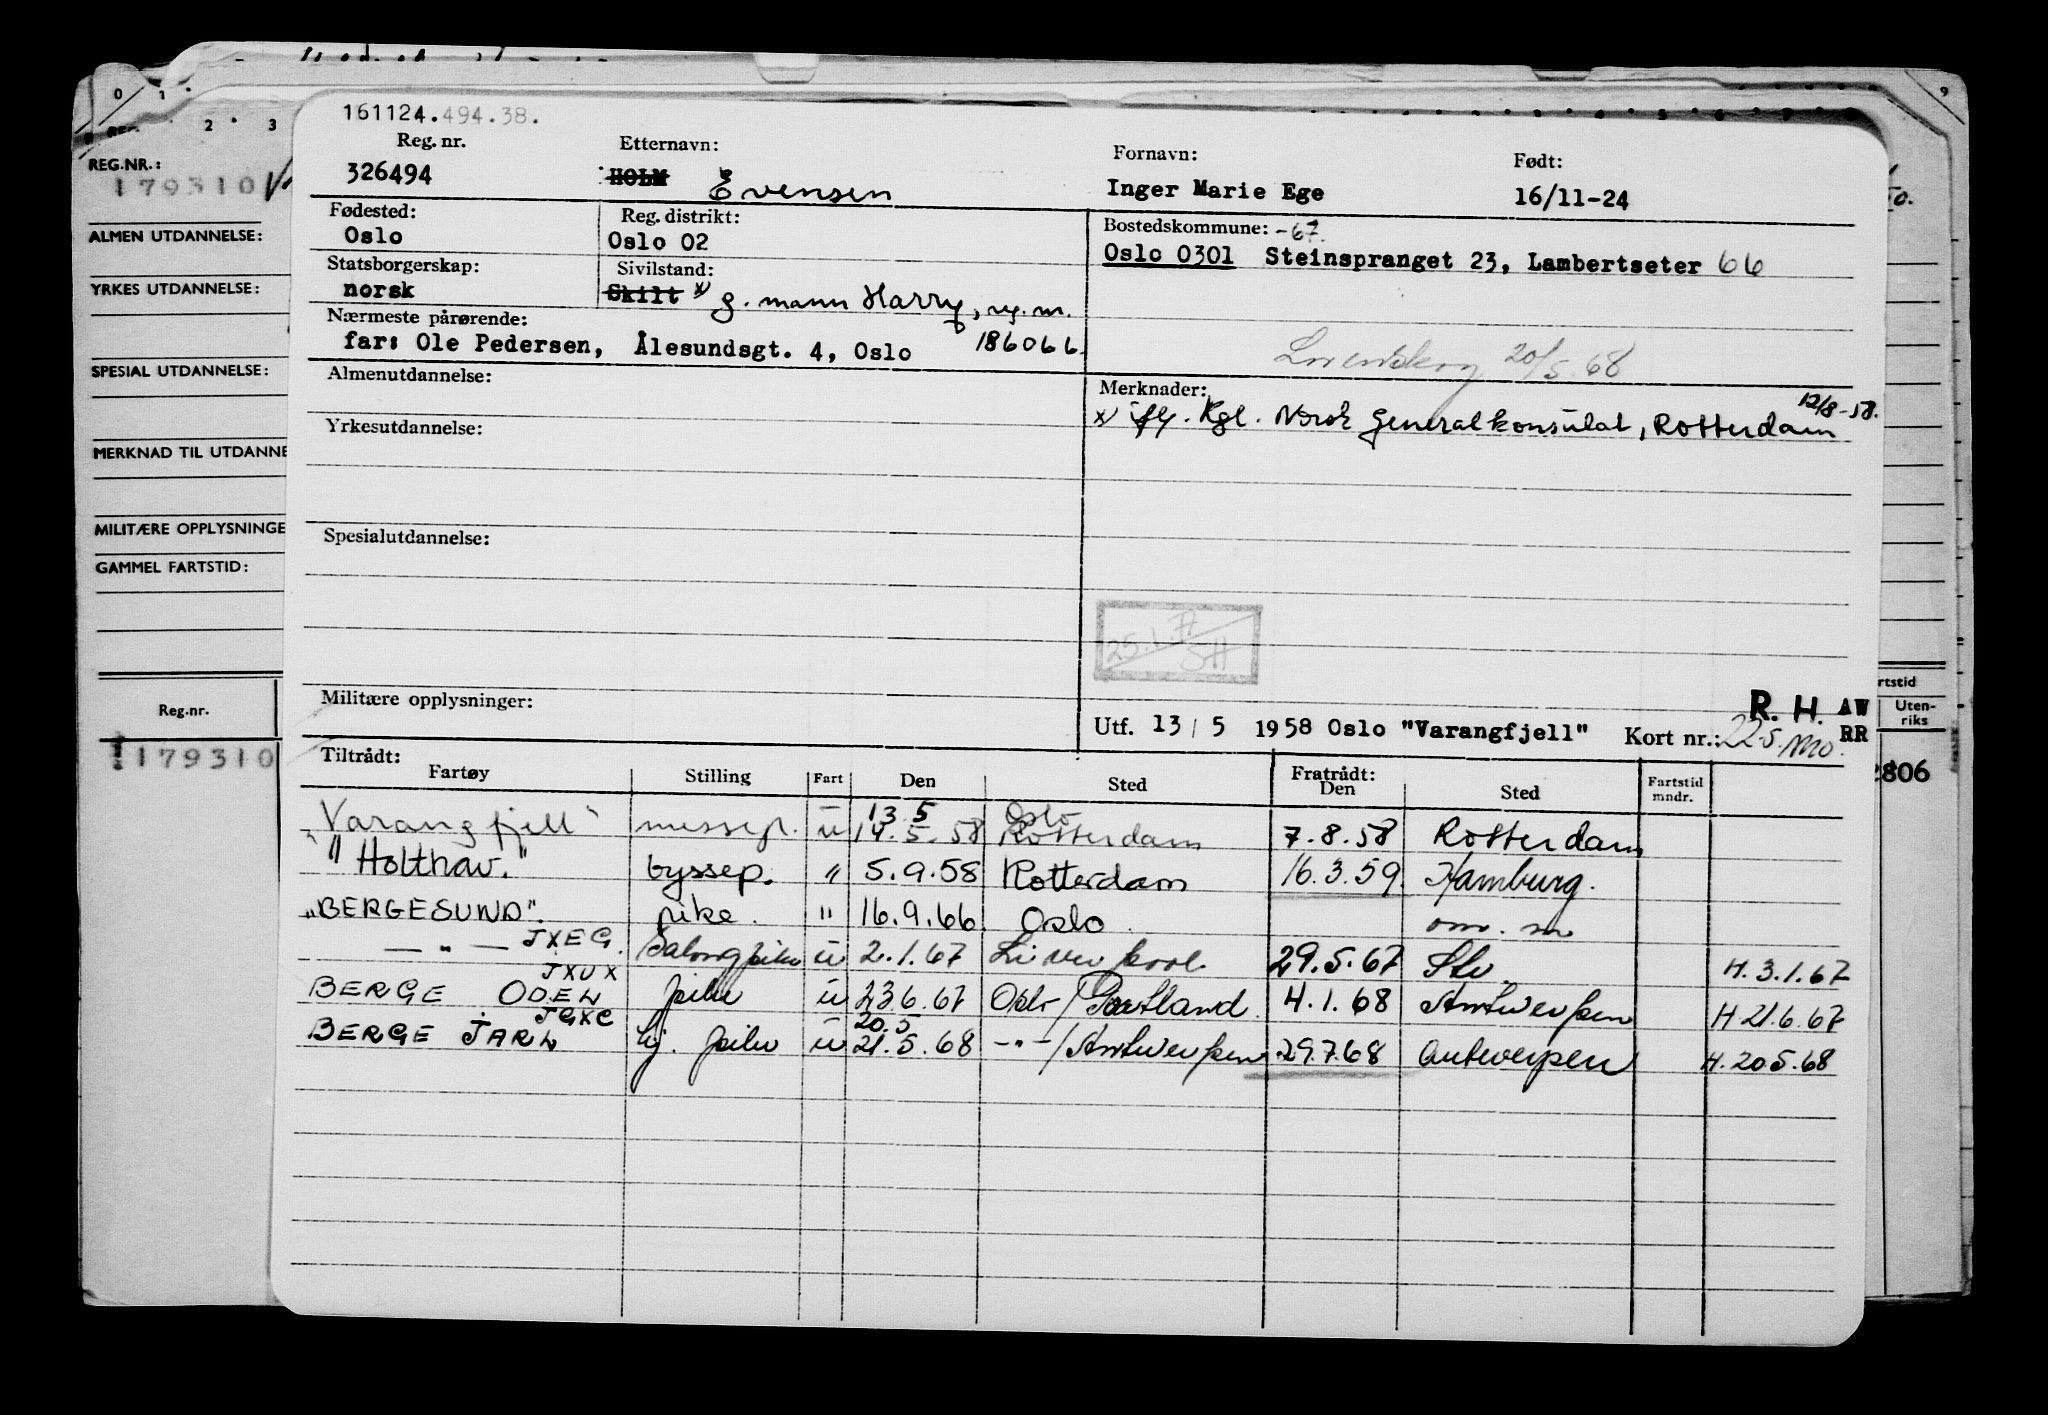 161124.494.38.
Reg. nr. Etternavn: Fornavn: Født:
326494 HOLM Evensen Inger Marie Ege 16/11-24
Fødested: Reg. distrikt: Bostedskommune: -67.
Oslo Oslo 02 Oslo 0301 Steinspranget 23, Lambertseter 66
Statsborgerskap: Sivilstand:
norsk Skilt x) g. mann Harry, rg. nr.
Nærmeste pårørende: 186066
far: Ole Pedersen, Ålesundsgt. 4, Oslo
Lørenskog 20/5.68
Almenutdannelse: Merknader: 12/8-58.
x) iflg. Kgl. Norsk Generalkonsulat, Rotterdam
Yrkesutdannelse:
Spesialutdannelse:
25.1.77
SH
Militære opplysninger: R. H. AW
Utf. 13 / 5 1958 Oslo "Varangfjell" Kort nr.: 22-5 RR
Tiltrådt: Fratrådt:
Fartøy Stilling Fart Den Sted Den Sted Fartstid mndr.
13 5 Oslo
"Varangfjell" messep. u 14.5.58 Rotterdam 7.8.58 Rotterdam
"Holthav." byssep. " 5.9.58 Rotterdam 16.3.59. Hamburg.
"BERGESUND". pike. " 16.9.66 Oslo. om. m
— " — JXEG. Salongpike u 2.1.67 Liverpool 29.5.67 Stv. H. 3.1.67
JXUX
BERGE ODEL pike u 23.6.67 Oslo/Portland 4.1.68 Antwerpen H 21.6.67
JGXC 20.5
BERGE JARL hj. pike u 21.5.68 -"-/Antwerpen 29.7.68 Antwerpen H. 20.5.68
0 1
2 3
9
REG.NR.:
179310
ALMEN UTDANNELSE:
YRKES UTDANNELSE:
SPESIAL UTDANNELSE:
MERKNAD TIL UTDANNE
MILITÆRE OPPLYSNINGE
GAMMEL FARTSTID:
Reg.nr.
179310
rtstid
Uten-
riks
2806